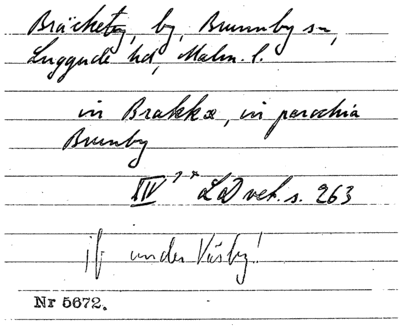 Bräcketorp, by, Brunnby sn,
Luggude hd, Malm. l.
in Brakkæ, in parochia
Brunby
XIV LD vet. s. 263
jfr under Väsby!
Nr 5672.